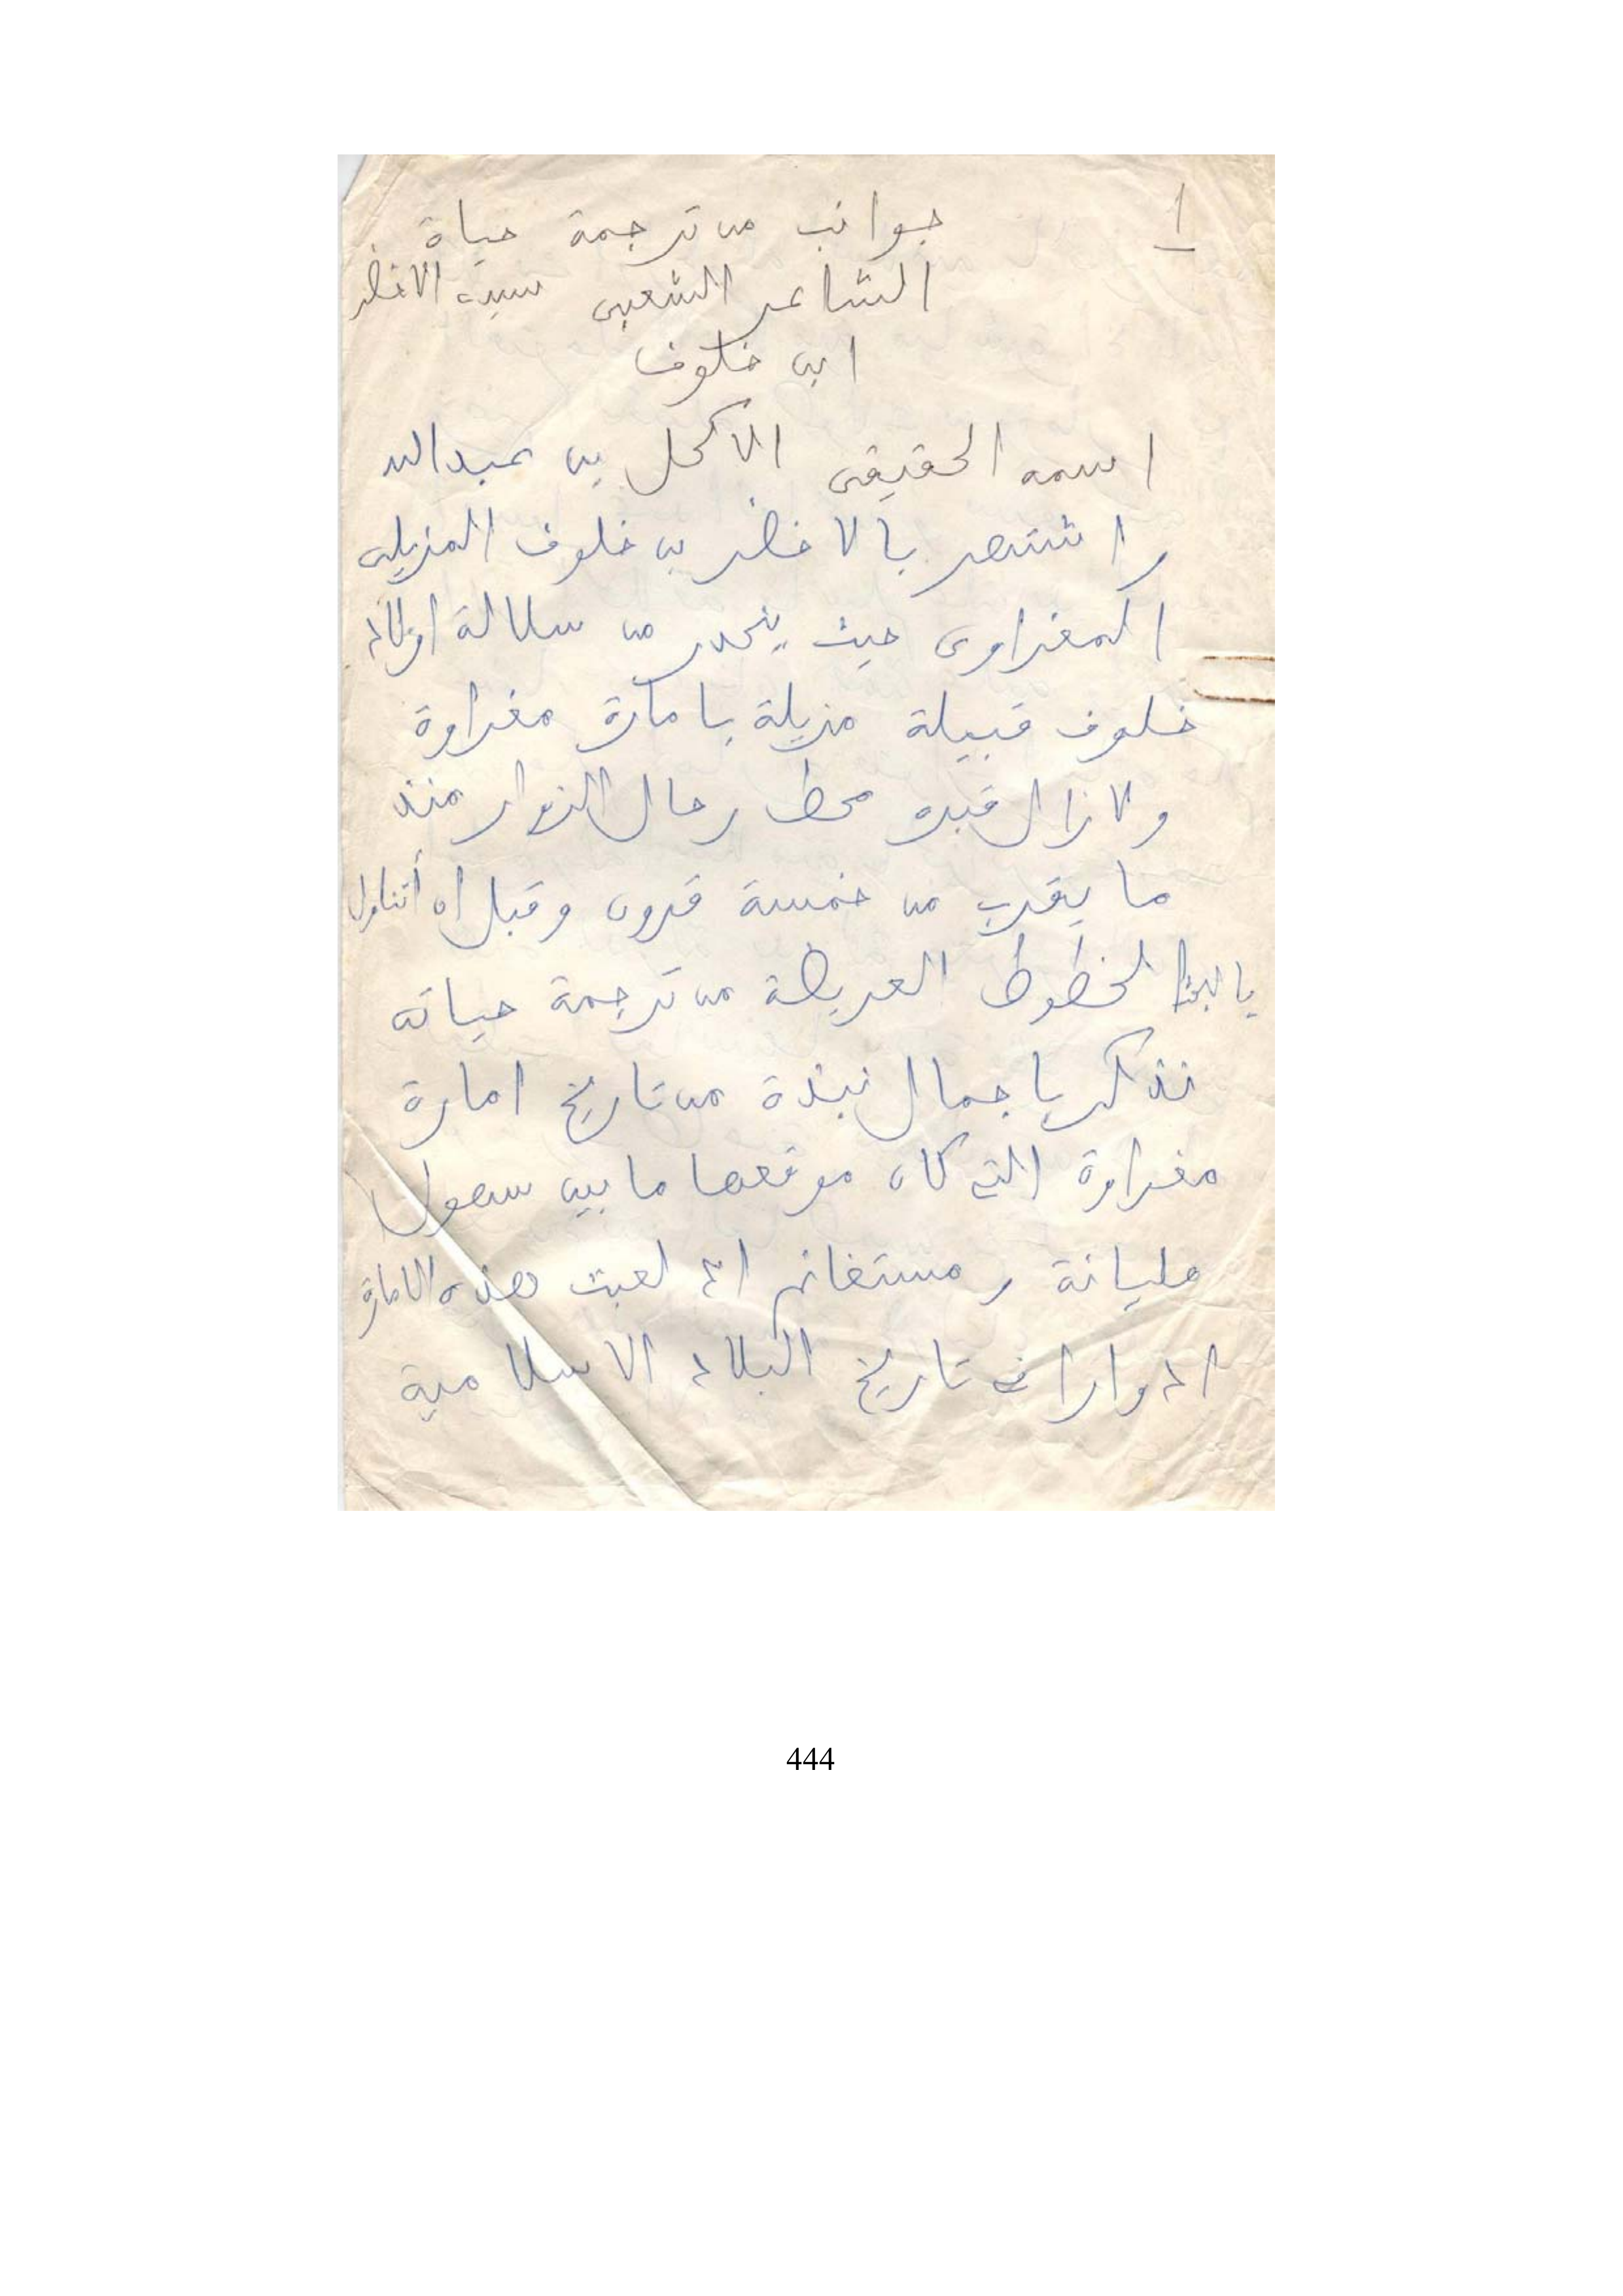 1
جوانب من ترجمة حياة
الشاعر الشعبي سيدي الاخضر
ابن خلوف
اسمه الحقيقي الاكحل بن عبدالله
واشتهر بالاخضر بن خلوف المزيلي
المغراوي حيث ينحدر من سلالة اولاد
خلوف قبيلة مزيلة بامارة مغراوة
ولازال قبره محط رحال الزوار منذ
ما يقرب من خمسة قرون وقبل ان أتناول
بالبحث الخطوط العريضة من ترجمة حياته
نذكر باجمال نبذة من تاريخ امارة
مغراوة التي كان موقعها ما بين سهول
مليانة ومستغانم اذ لعبت هذه الامارة
ادوارا في تاريخ البلاد الاسلامية
444